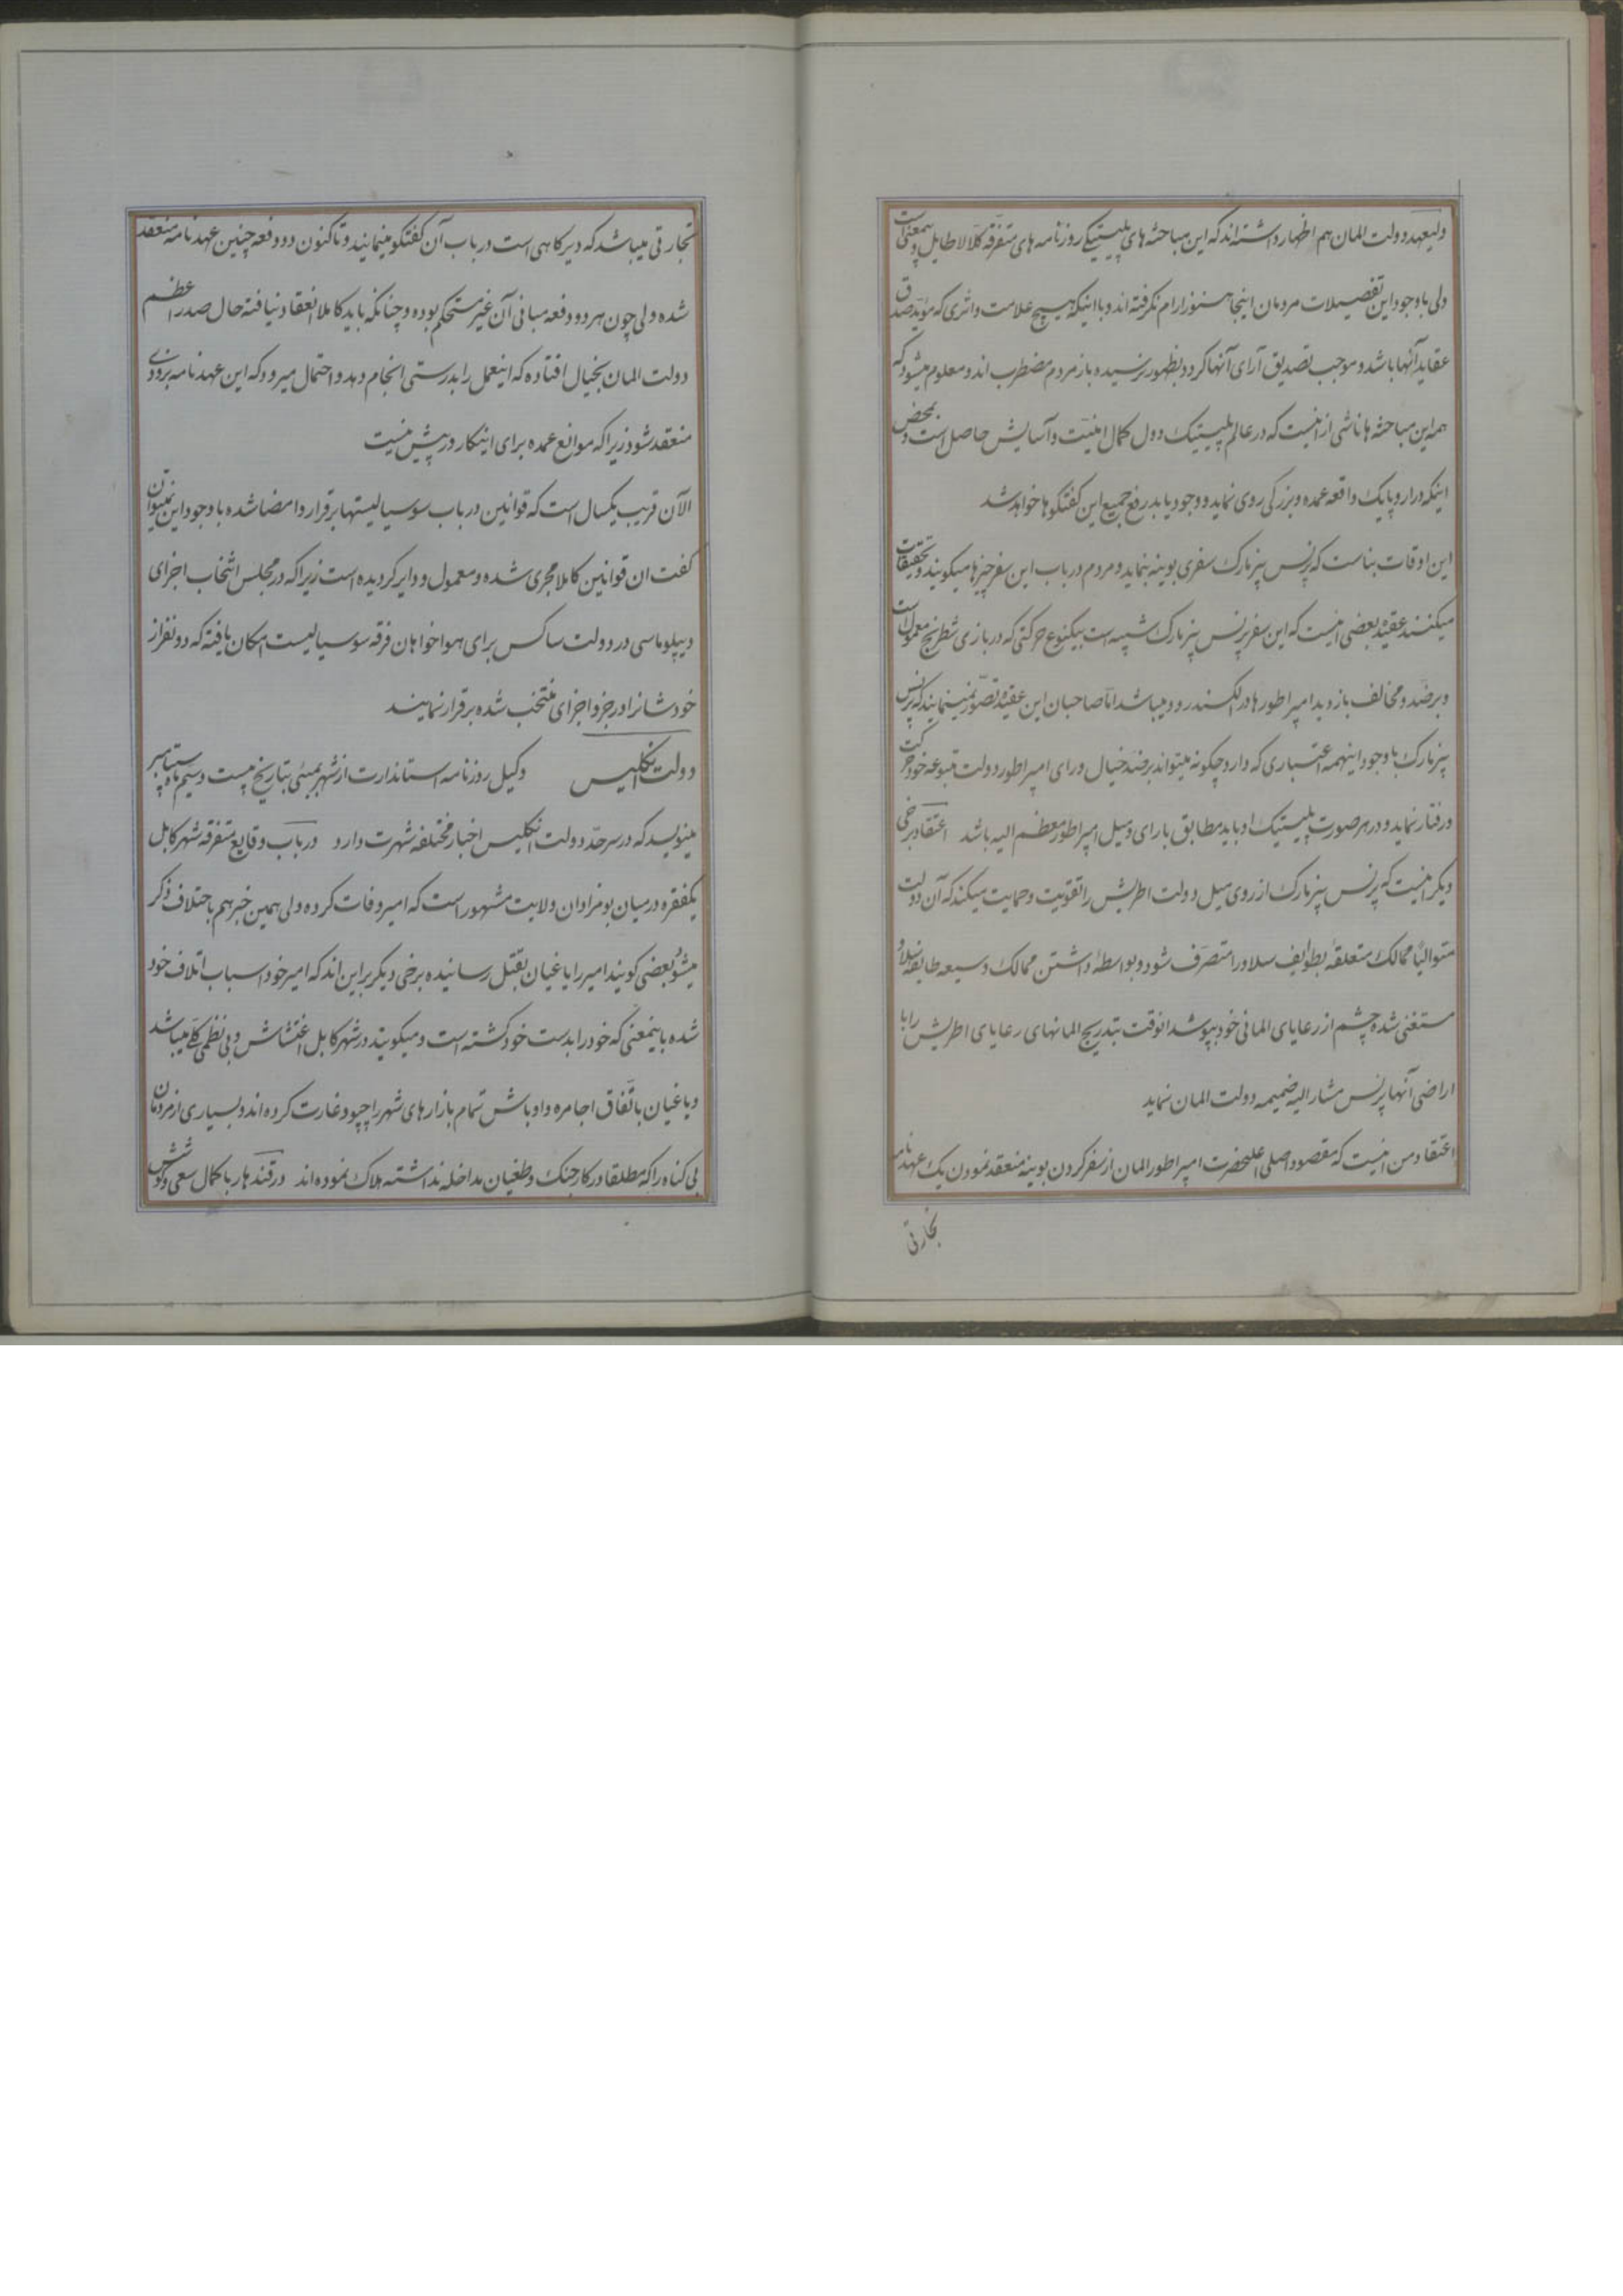 ولیعهد دولت المان هم اظهار داشته‌اند که این مباحثه های پلیتیکے روزنامه های متفرقه کلا لاطایل و بیمعنی است
ولی باوجود این تفصیلات مردمان اینجا هنوز ارام نگرفته اند و با اینکه هیچ علامت و اثری که موید صدق
عقاید آنها باشد و موجب تصدیق آرای آنها کردد بظهور نرسیده باز مردم مضطرب اند و معلوم میشود که
همه این مباحثه ها ناشی از اینست که در عالم پلیتیک دول کمال امنیت و آسایش حاصل است و بمحض
اینکه در اروپا یک واقعه عمده و بزرکی روی نماید و وجود یابد رفع جمیع این کفتکو ها خواهد شد
این اوقات بناست که پرنس بیزمارک سفری بوینه بنماید و مردم در باب این سفر چیزها میکویند و تحقیقات
میکنند عقیدهٔ بعضی اینست که این سفر پرنس بیزمارک شبیه است بیکنوع حرکتی که در بازی شطرنج معمول است
و بر ضد و مخالف بازدید امپراطورها در الکسندرو میباشد اما صاحبان این عقیده تصور نمینمایند که پرنس
بیزمارک باوجود اینهمه اعتباری که دارد چکونه میتواند بر ضد خیال و رای امپراطور دولت متبوعه خود حرکت
و رفتار نماید و در هر صورت پلیتیک او باید مطابق با رای و میل امپراطور معظم الیه باشد اعتقاد برخی
دیکر اینست که پرنس بیزمارک از روی میل دولت اطریش را تقویت و حمایت میکند که آن دولت
متوالیاً ممالک متعلقه بطوایف سلاو را متصرف شود و بواسطهٔ داشتن ممالک وسیعه طایفه سلاو
مستغنی شده چشم از رعایای المانی خود بپوشد انوقت بتدریج المانهای رعایای اطریش را با
اراضی آنها پرنس مشار الیه ضمیمه دولت المان نماید
اعتقاد من اینست که مقصود اصلی اعلیحضرت امپراطور المان از سفر کردن بوینه منعقد نمودن یک عهدنامه
تجارتی
تجارتی میباشد که دیرکاهی است در باب آن کفتکو مینمایند و تاکنون دو دفعه چنین عهدنامه منعقد
شده ولی چون هر دو دفعه مبانی آن غیر مستحکم بوده و چنانکه باید کاملا انعقاد نیافته حال صدر اعظم
دولت المان بخیال افتاده که اینعمل را بدرستی انجام دهد و احتمال میرود که این عهدنامه بزودی
منعقد شود زیرا که موانع عمده برای اینکار در پیش نیست
الآن قریب یکسال است که قوانین در باب سوسیالیستها برقرار و امضا شده باوجود این نمیتوان
کفت ان قوانین کاملا مجری شده و معمول و دایر کردیده است زیرا که در مجلس انتخاب اجزای
دیپلوماسی در دولت ساکس برای هواخواهان فرقه سوسیالیست امکان یافته که دو نفر از
خودشانرا در جزو اجزای منتخب شده برقرار نمایند
دولت انکلیس وکیل روزنامه استاندارت از شهر بمبئی بتاریخ بیست و سیم ماه سپتامبر
مینویسد که در سرحد دولت انکلیس اخبار مختلفه شهرت دارد در باب وقایع متفرقه شهر کابل
یکفقره در میان بومزاوان ولایت مشهور است که امیر وفات کرده ولی همین خبر هم باختلاف ذکر
میشود بعضی کویند امیر را یاغیان بقتل رسانیده برخی دیکر براین اند که امیر خود اسباب اتلاف خود
شده باینمعنی که خود را بدست خود کشته است و میکویند در شهر کابل اغتشاش و بی نظمی کلے میباشد
و یاغیان باتفاق اجامره و اوباش تمام بازارهای شهر را چپو و غارت کرده اند و بسیاری از مردمان
بی کناه را که مطلقا در کار جنک و طغیان مداخله نداشته هلاک نموده اند در قندهار با کمال سعی و کوشش